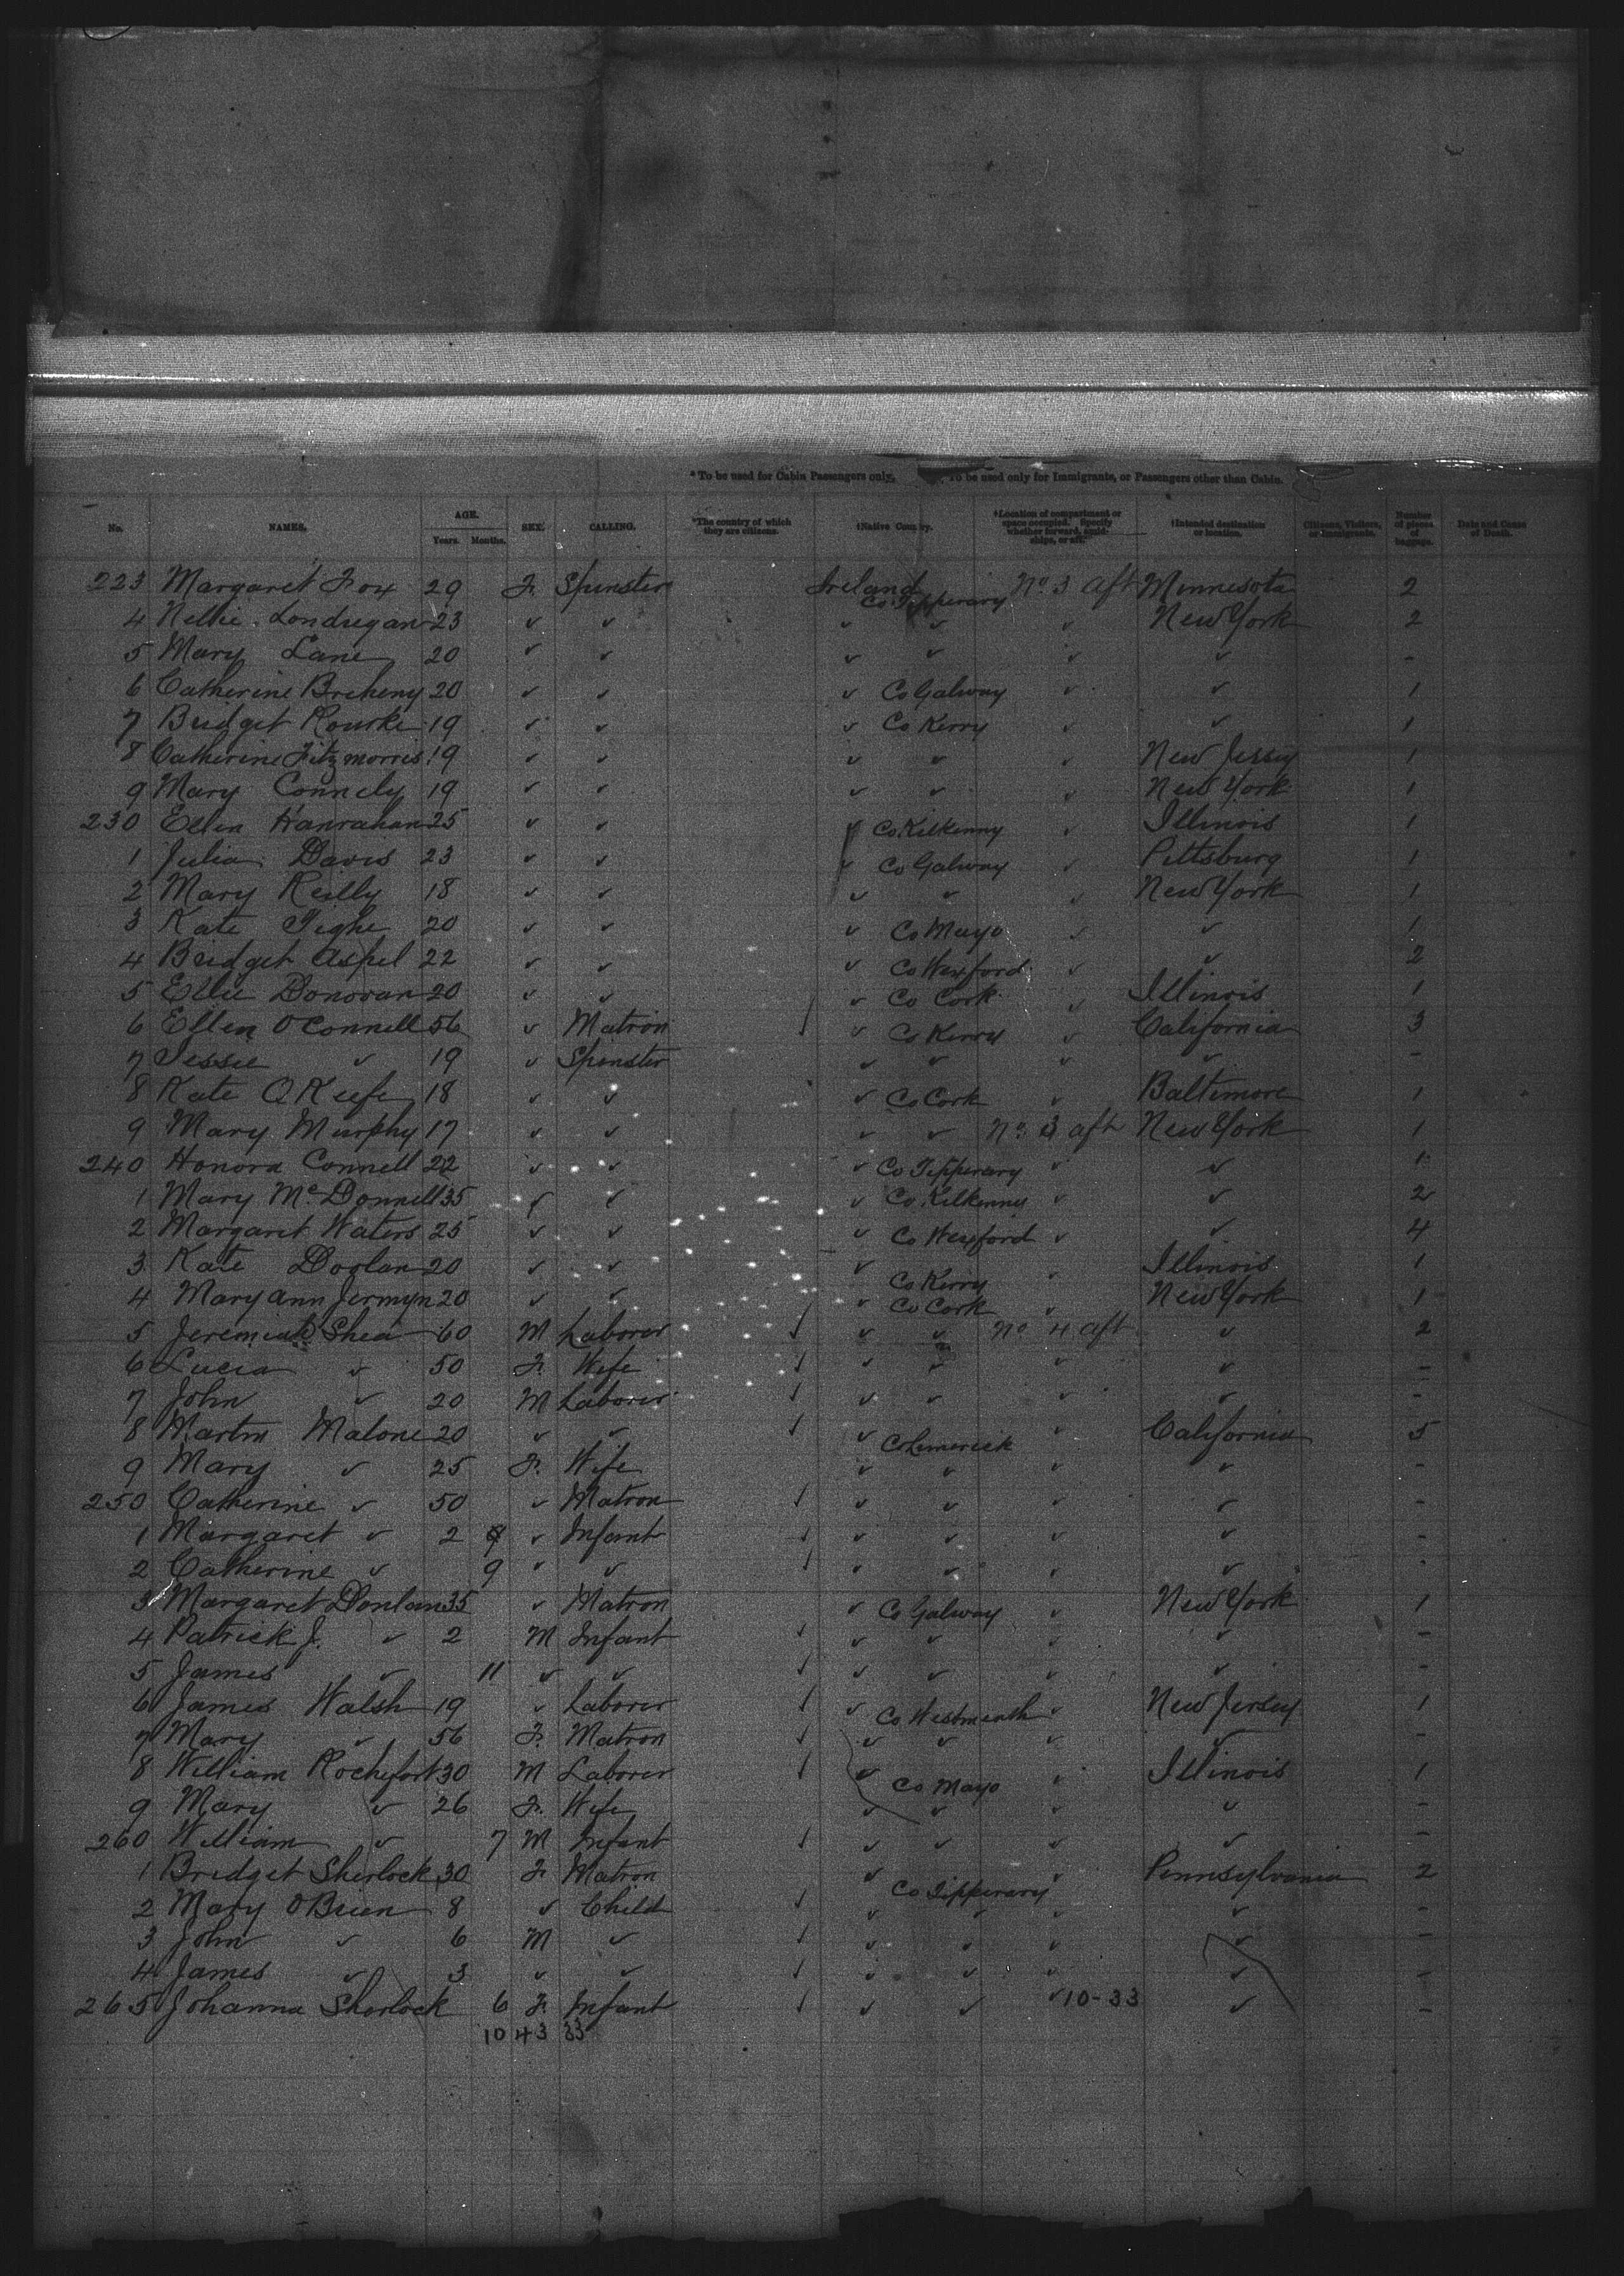 * To be used for Cabin Passengers only. To be used only for Immigrants, or Passengers other than Cabin.
No. NAMES. AGE. Years. Months. SEX. CALLING. *The country of which they are citizens. †Native Country. †Location of compartment or space occupied. Specify whether forward, amidships, or aft. †Intended destination or location. Citizens, Visitors, or Immigrants. Number of pieces of baggage. Date and Cause of Death.
223 Margaret Fox 29 F. Spinster Ireland Co Tipperary No 3 aft Minnesota 2
4 Nellie Londregan 23 ✓ ✓ ✓ ✓ ✓ New York 2
5 Mary Lane 20 ✓ ✓ ✓ ✓ ✓ ✓ -
6 Catherine Breheny 20 ✓ ✓ ✓ Co Galway ✓ ✓ 1
7 Bridget Rourke 19 ✓ ✓ ✓ Co Kerry ✓ ✓ 1
8 Catherine Fitzmorris 19 ✓ ✓ ✓ ✓ ✓ New Jersey 1
9 Mary Connely 19 ✓ ✓ ✓ ✓ ✓ New York 1
230 Ellen Hanrahan 25 ✓ ✓ ✓ Co Kilkenny ✓ Illinois 1
1 Julia Davis 23 ✓ ✓ ✓ Co Galway ✓ Pittsburg 1
2 Mary Reilly 18 ✓ ✓ ✓ ✓ ✓ New York 1
3 Kate Tighe 20 ✓ ✓ ✓ Co Mayo ✓ ✓ 1
4 Bridget Aspel 22 ✓ ✓ ✓ Co Wexford ✓ ✓ 2
5 Ellie Donovan 20 ✓ ✓ ✓ Co Cork ✓ Illinois 1
6 Ellen O'Connell 56 ✓ Matron ✓ Co Kerry ✓ California 3
7 Jessie ✓ 19 ✓ Spinster ✓ ✓ ✓ ✓ -
8 Kate O'Keefe 18 ✓ ✓ ✓ Co Cork ✓ Baltimore 1
9 Mary Murphy 17 ✓ ✓ ✓ ✓ No. 3 aft New York 1
240 Honora Connell 22 ✓ ✓ ✓ Co Tipperary ✓ ✓ 1
1 Mary McDonnell 35 ✓ ✓ ✓ Co Kilkenny ✓ ✓ 2
2 Margaret Waters 25 ✓ ✓ ✓ Co Wexford ✓ ✓ 4
3 Kate Doolan 20 ✓ ✓ ✓ Co Kerry ✓ Illinois 1
4 Mary Ann Jermyn 20 ✓ ✓ ✓ Co Cork ✓ New York 1
5 Jeremiah Shea 60 M Laborer ✓ ✓ No 4 aft ✓ 2
6 Lucia ✓ 50 F. Wife ✓ ✓ ✓ ✓ -
7 John ✓ 20 M Laborer ✓ ✓ ✓ ✓ -
8 Martin Malone 20 ✓ ✓ ✓ Co Limerick ✓ California 5
9 Mary ✓ 25 F. Wife ✓ ✓ ✓ ✓ -
250 Catherine ✓ 50 ✓ Matron ✓ ✓ ✓ ✓ -
1 Margaret ✓ 2 ✓ Infant ✓ ✓ ✓ ✓ -
2 Catherine ✓ 9 ✓ ✓ ✓ ✓ ✓ ✓ -
3 Margaret Donlan 35 ✓ Matron ✓ Co Galway ✓ New York 1
4 Patrick J. ✓ 2 M Infant ✓ ✓ ✓ ✓ -
5 James ✓ 11 ✓ ✓ ✓ ✓ ✓ ✓ -
6 James Walsh 19 ✓ Laborer ✓ Co Westmeath ✓ New Jersey 1
7 Mary ✓ 56 F. Matron ✓ ✓ ✓ ✓ -
8 William Rochefort 30 M Laborer ✓ Co Mayo ✓ Illinois 1
9 Mary ✓ 26 F. Wife ✓ ✓ ✓ ✓ -
260 William ✓ 7 M Infant ✓ ✓ ✓ ✓ -
1 Bridget Sherlock 30 F Matron ✓ Co Tipperary ✓ Pennsylvania 2
2 Mary O'Brien 8 ✓ Child ✓ ✓ ✓ ✓ -
3 John ✓ 6 M ✓ ✓ ✓ ✓ ✓ -
4 James ✓ 3 ✓ ✓ ✓ ✓ ✓ ✓ -
265 Johanna Sherlock 6 F. Infant ✓ ✓ ✓ 10-33 ✓ -
10 43 33